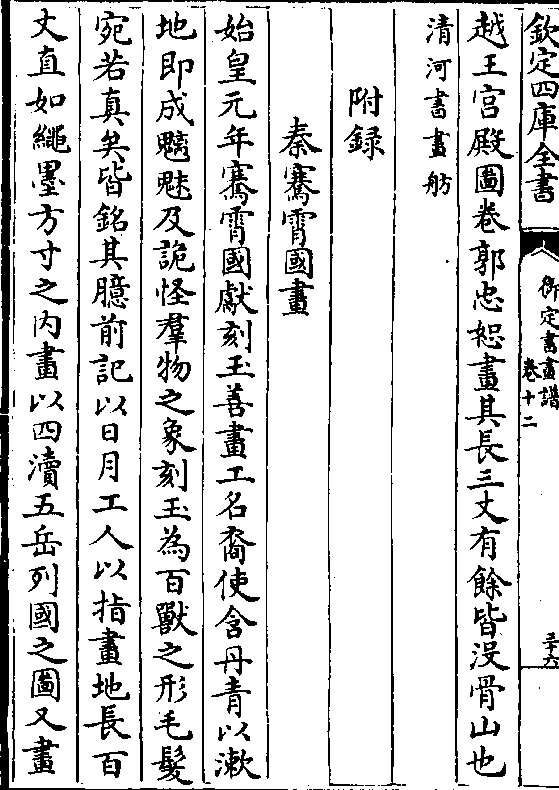 欽定四庫全書
御定書畫譜
卷十二
三十六
越王宫殿圖卷郭忠恕畫其長三丈有餘皆没骨山也
清河書畫舫
附録
秦騫霄國畫
始皇元年騫霄國獻刻玉善畫工名裔使含丹青以漱
地即成魑魅及詭怪羣物之象刻玉為百獸之形毛髮
宛若真矣皆銘其臆前記以日月工人以指畫地長百
丈直如繩墨方寸之内畫以四瀆五岳列國之圖又畫